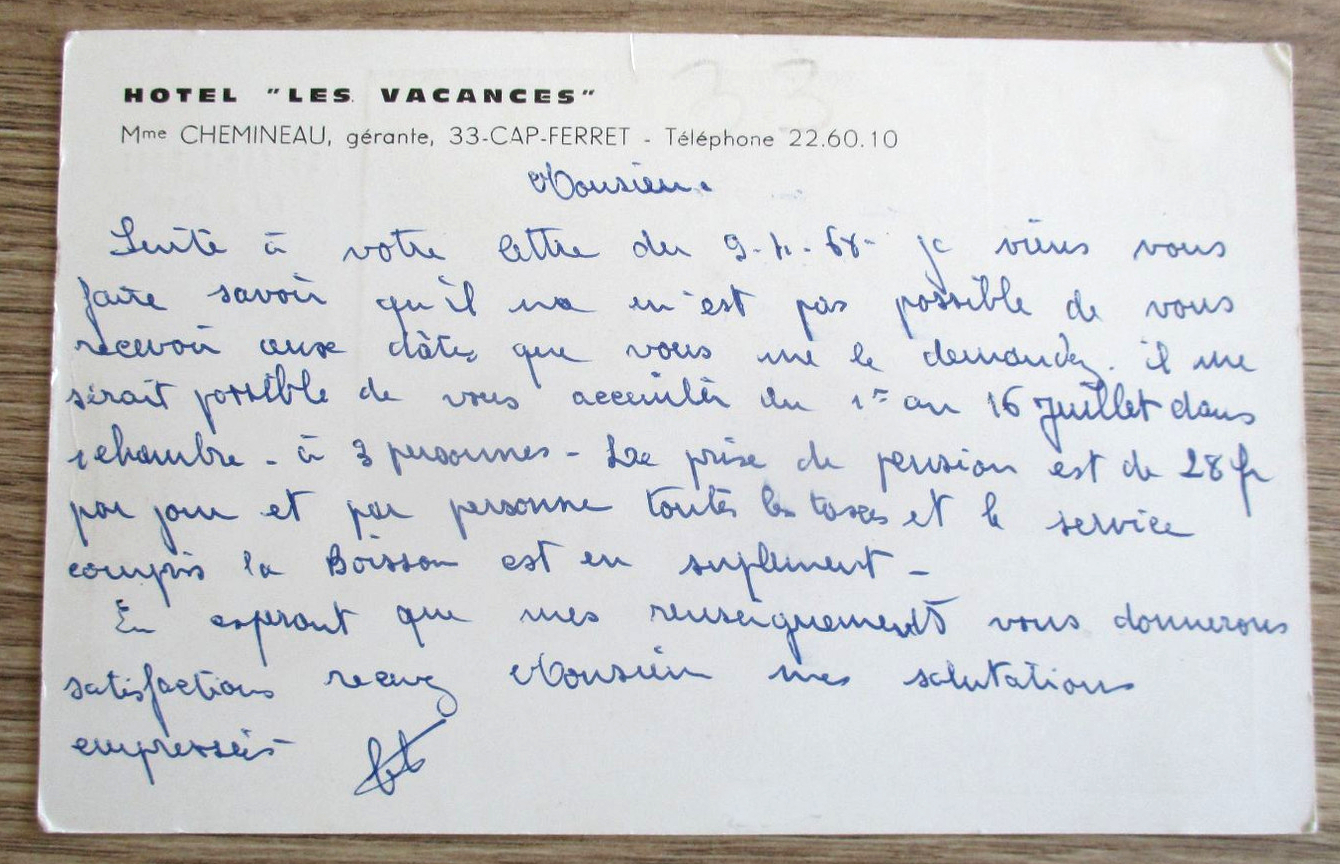 33
HOTEL "LES VACANCES"
Mme CHEMINEAU, gérante, 33-CAP-FERRET - Téléphone 22.60.10
Monsieur.
Suite à votre lettre du 9-4-68- je viens vous
faire savoir qu'il ne m'est pas possible de vous
recevoir aux dâtes que vous me le demandez. il me
serait possible de vous acceuilir du 1er au 16 Juillet dans
1 chambre - à 3 personnes - Le prise de pension est de 28 fr
par jour et par personne toutes les taxes et le service
compris la Boisson est en suplement -
En esperant que mes renseignements vous donnerons
satisfactions recevez Monsieur mes salutations
empressées